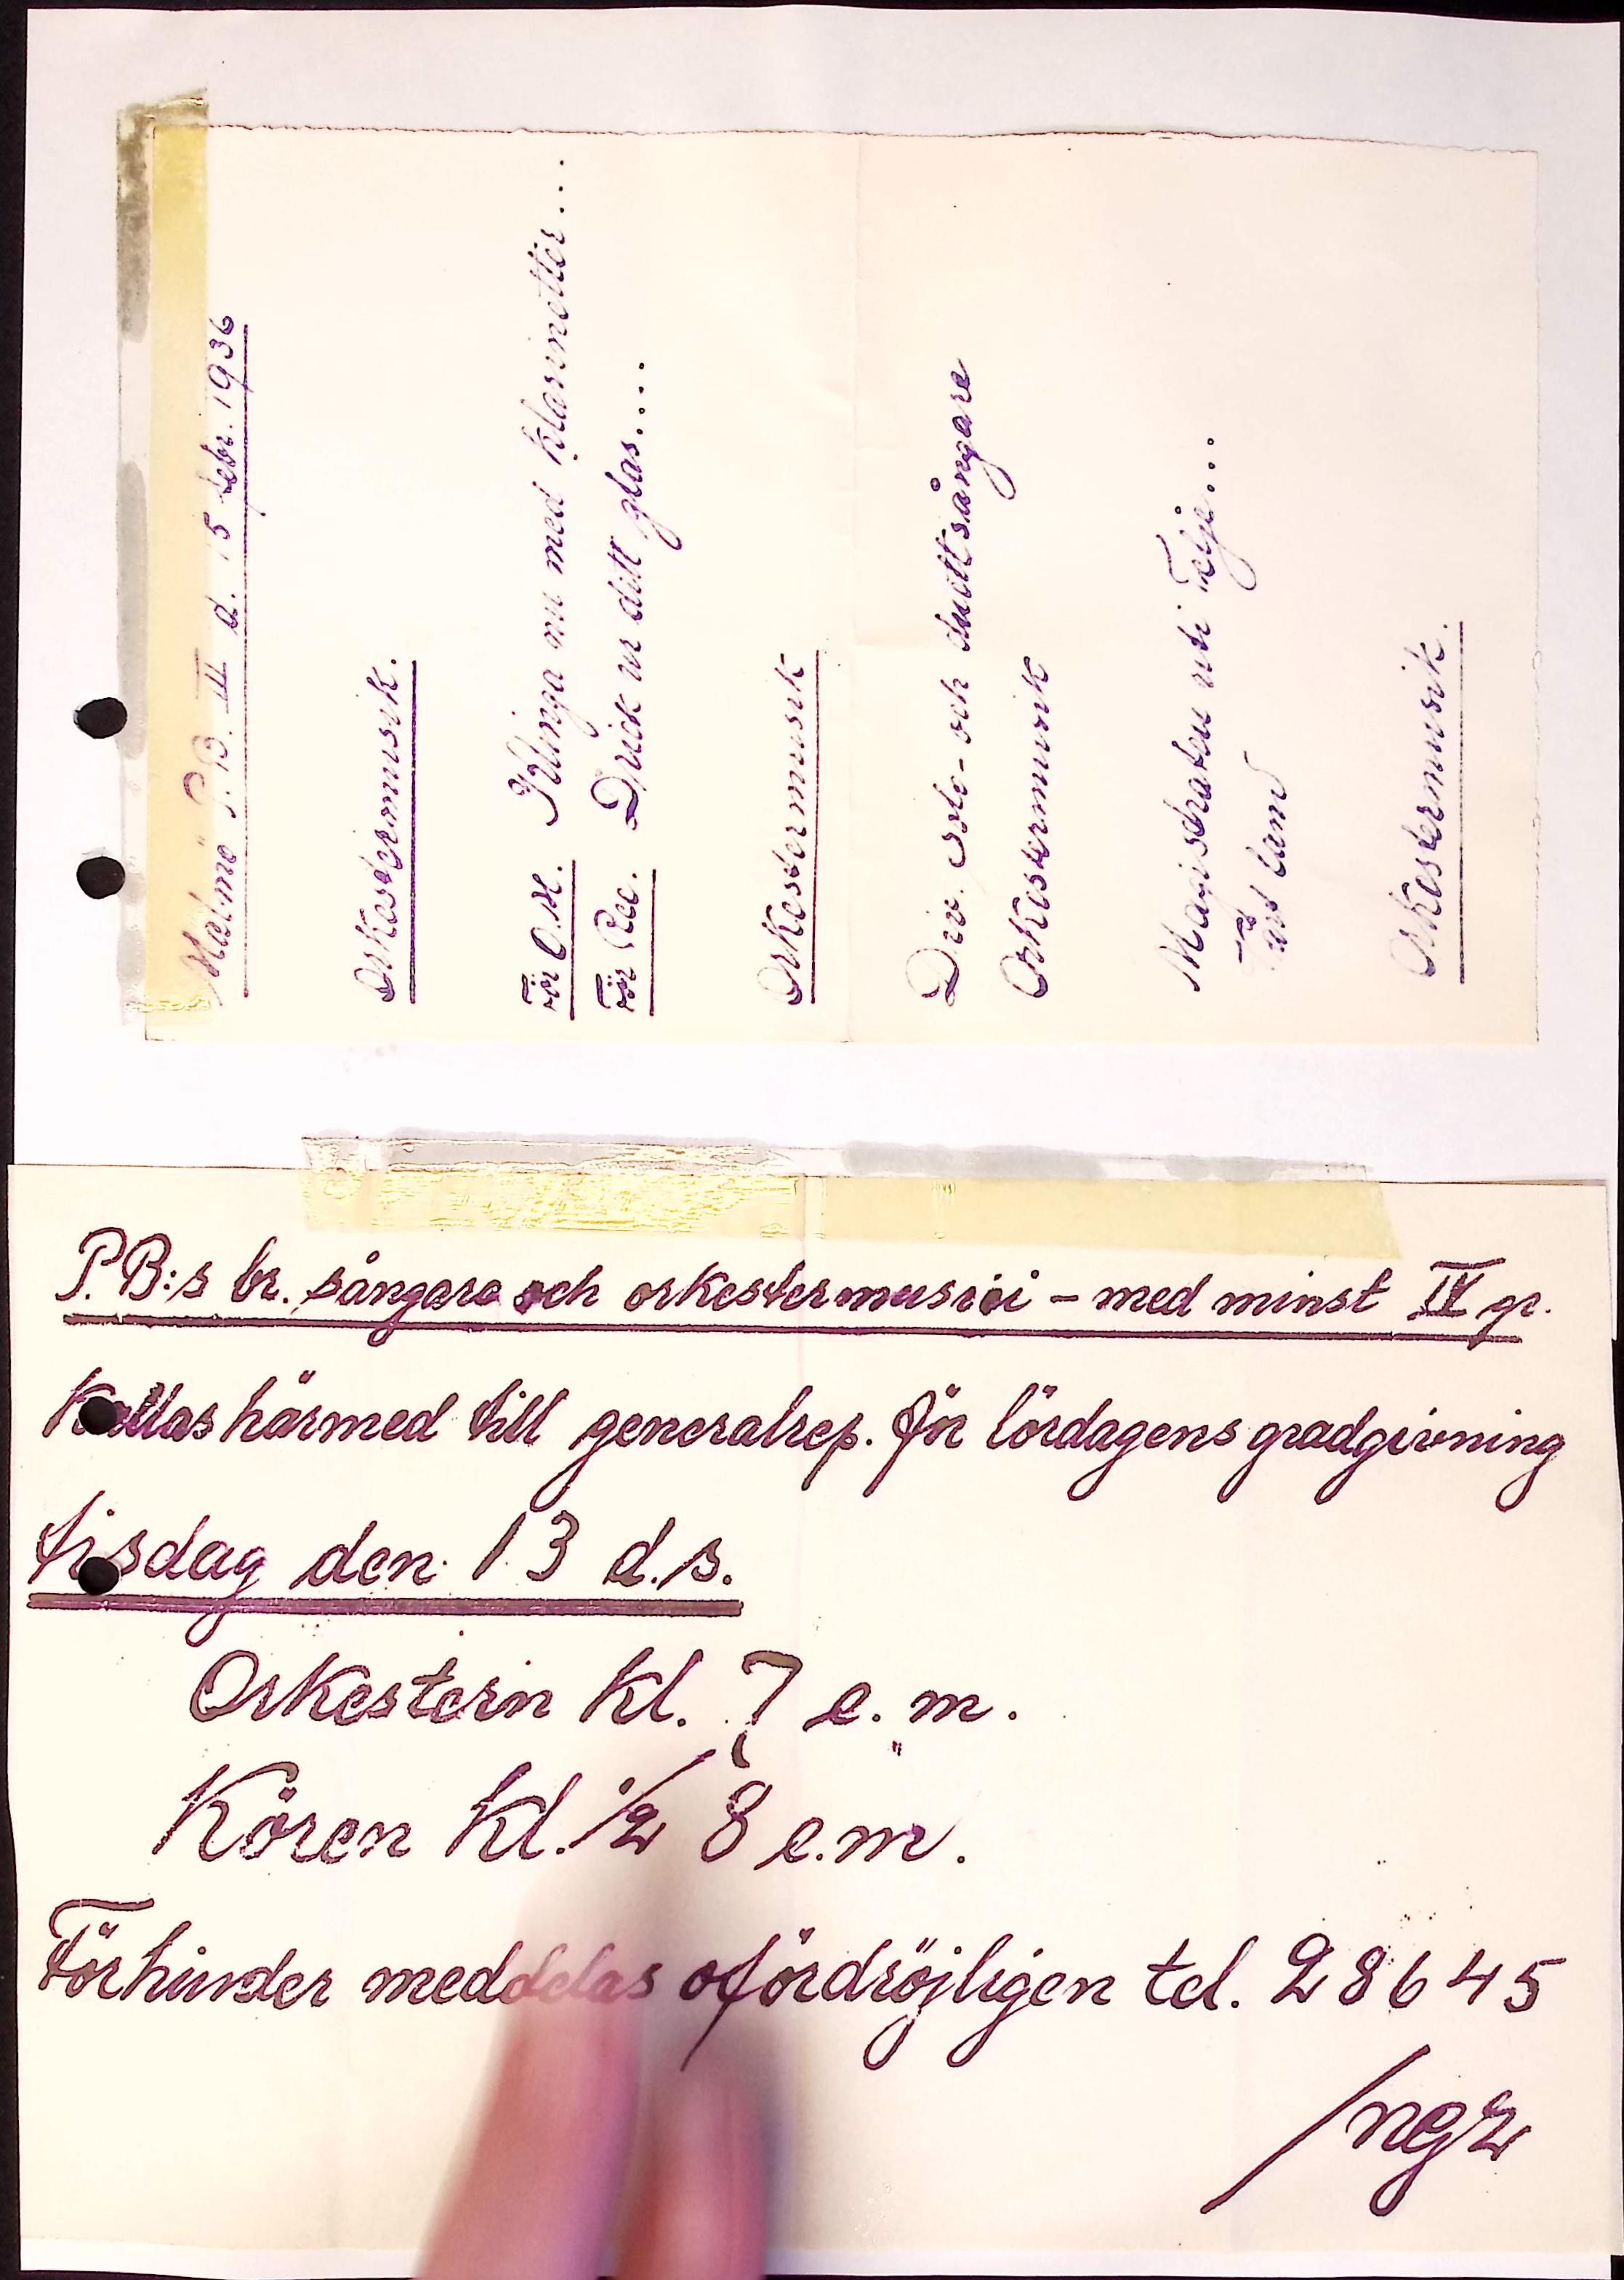 Malmö P.B. III d. 15 febr. 1936
Orkestermusik.
För O.M. Klinga nu med klarinetter...
För Rec. Drick ur ditt glas....
Orkestermusik
Div. solo- och duettsångare
Orkestermusik
Magistraten uti Telje...
Tåt tum
Orkestermusik.
P.B:s br. sångare och orkestermusici - med minst IV gr.
Kallas härmed till generalrep. för lördagens gradgivning
tisdag den 13 d.s.
Orkestern kl. 7 e.m.
Kören kl. 1/2 8 e.m.
Förhinder meddelas ofördröjligen tel. 28645
/ngr